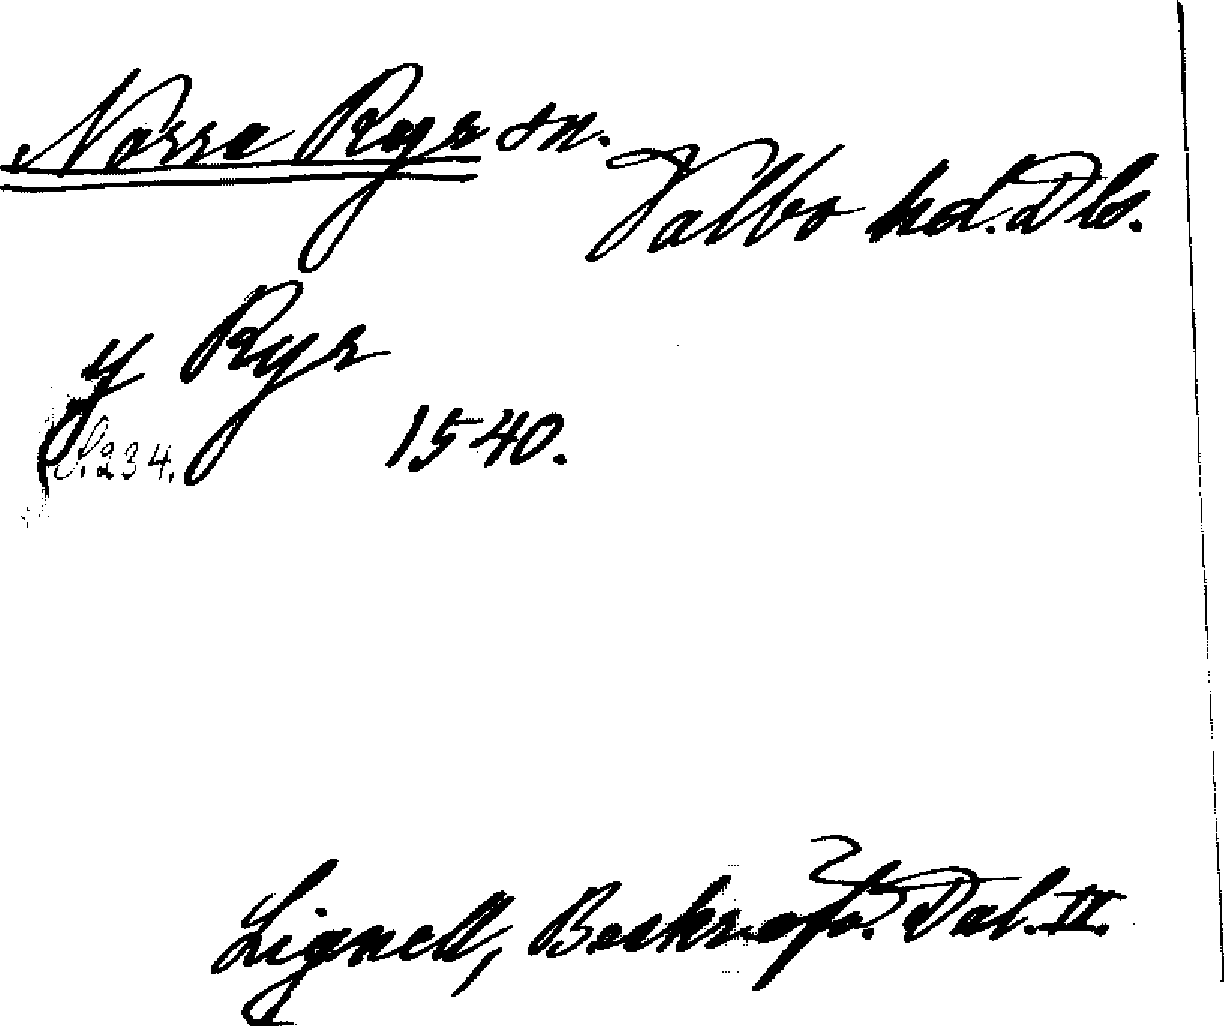 Norra Ryr sn.
Valbo hd. Dls.
y Ryr
S. 234.
1540.
Lignell, Beskr. öfv. Dal. II.